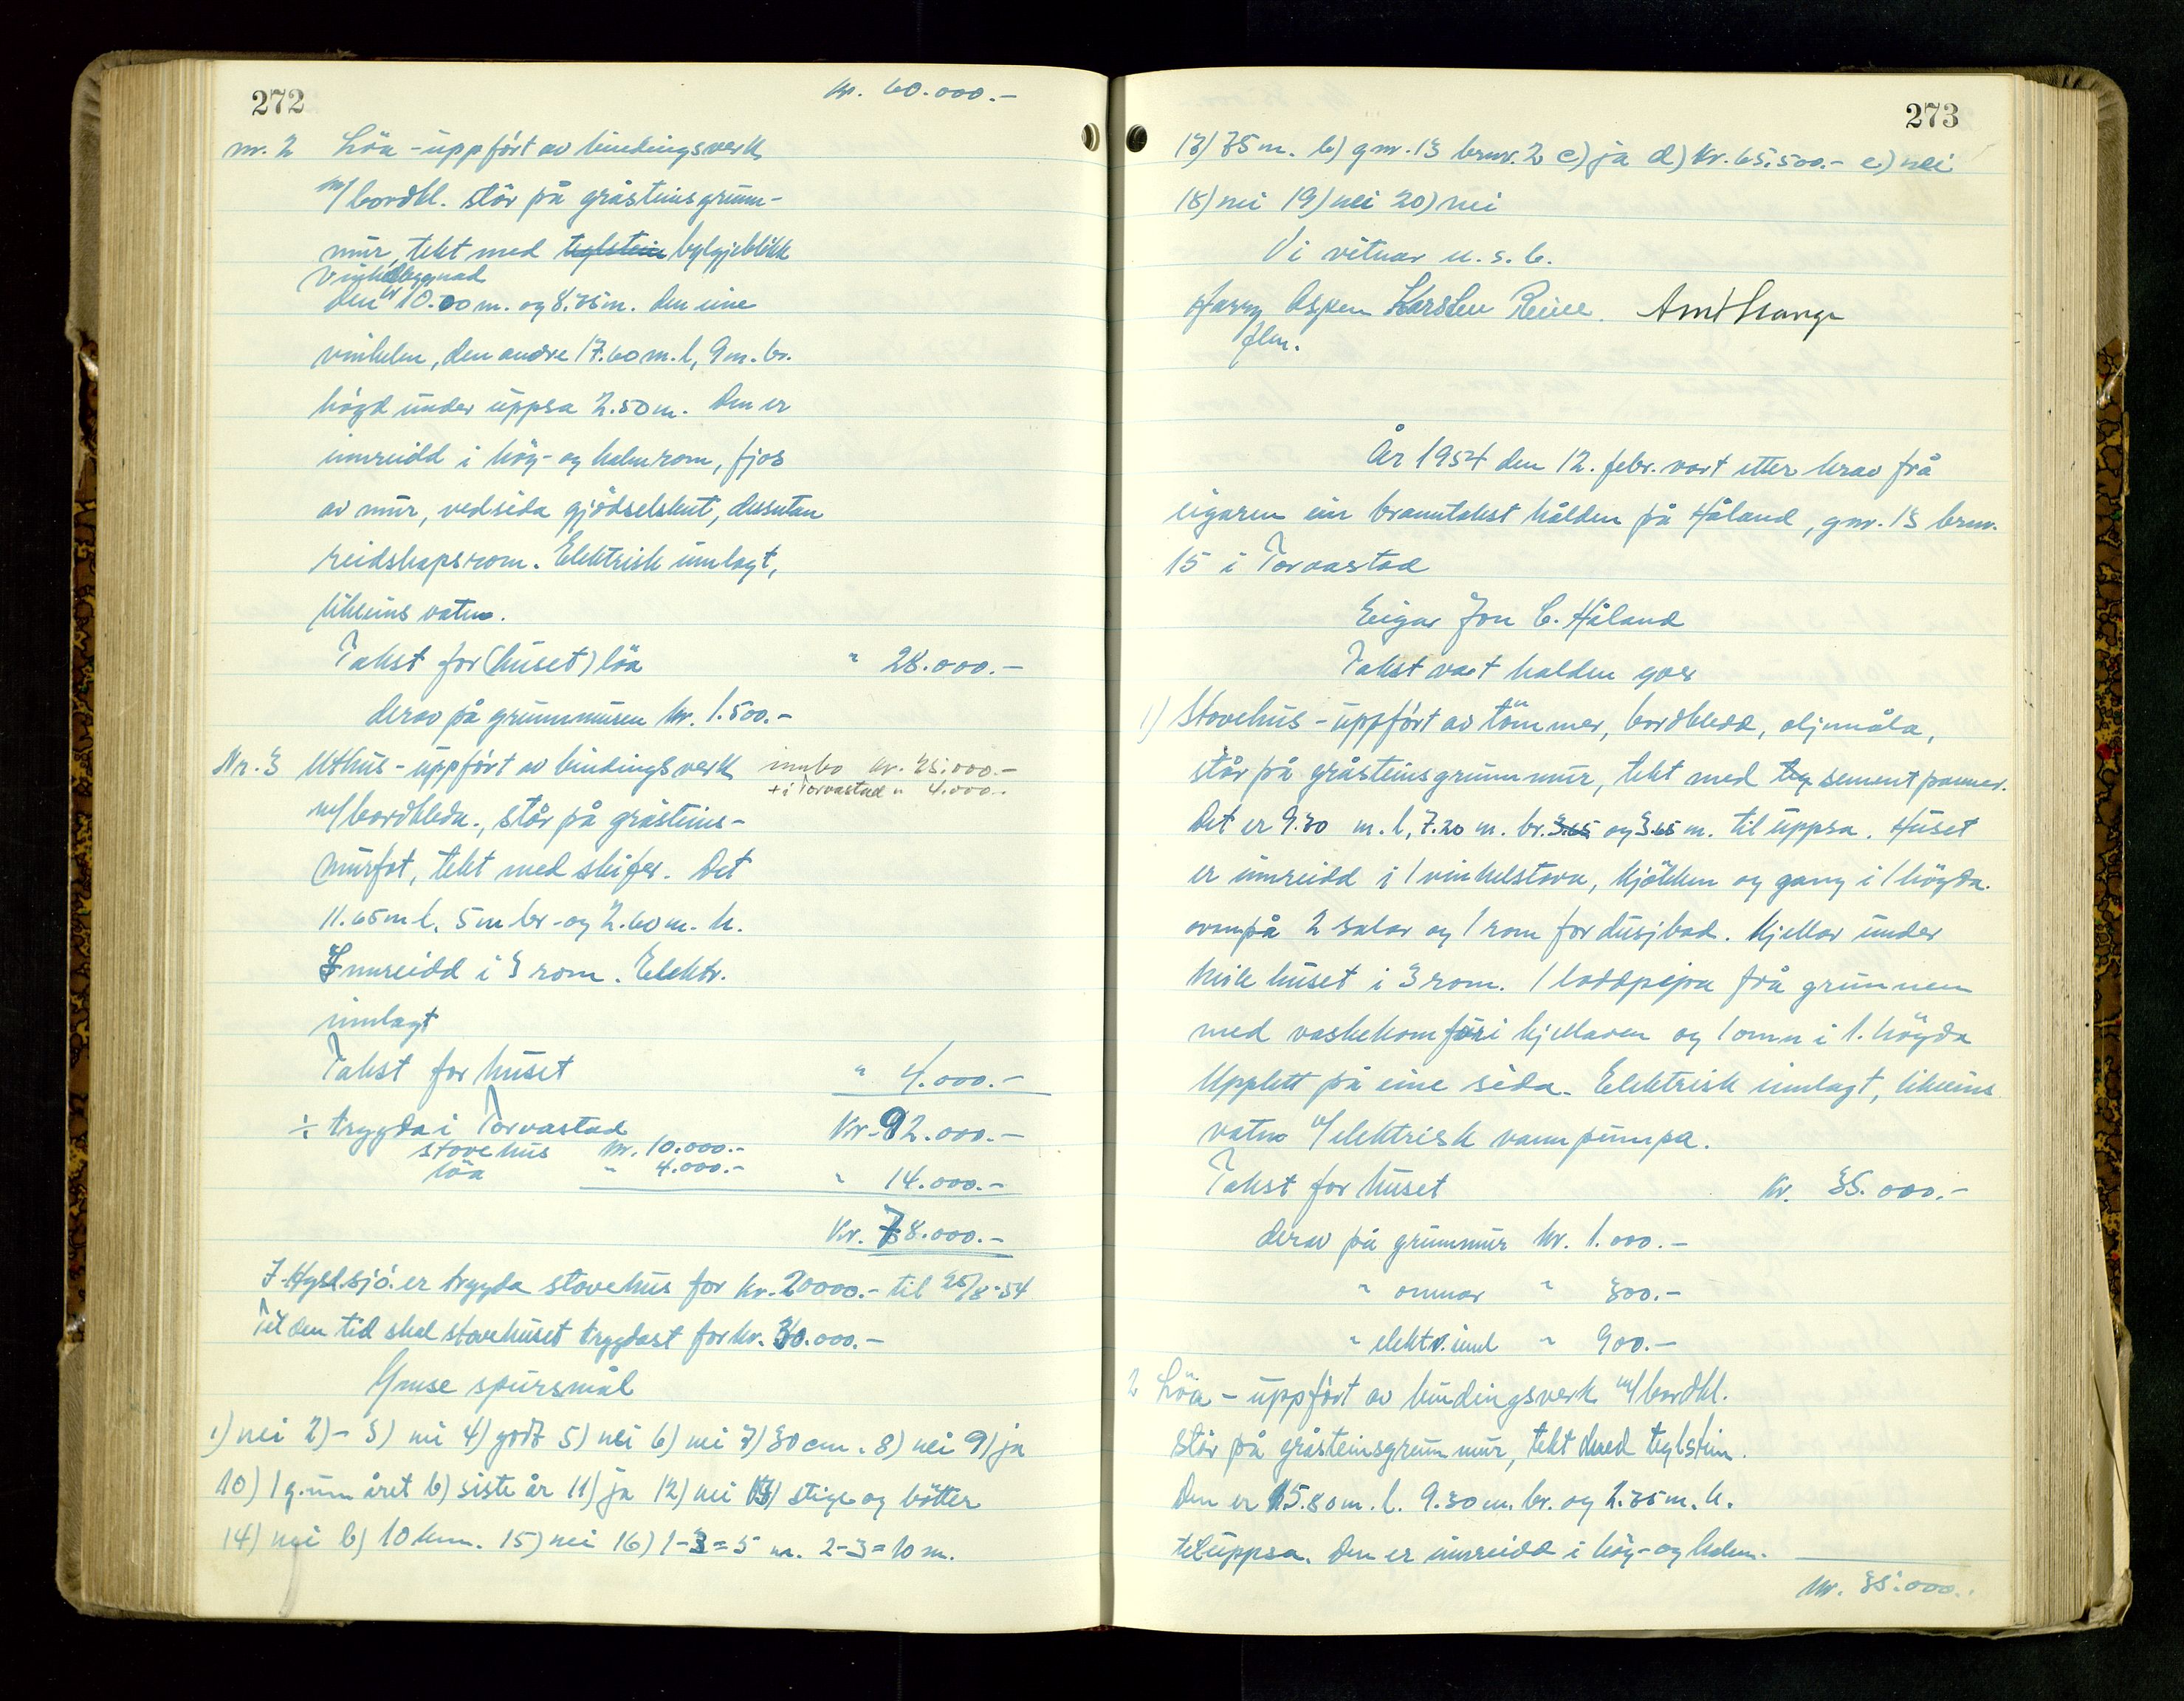 272
kr. 60.000.-
nr. 2 Löa - uppført av bindingsverk
m/bordkl. står på gråsteinsgrunn-
mur, tekt med teglstein bylgjeblikk
Vinkelbygnad
den er 10.00 m. og 8.35 m. den eine
vinkelen, den andre 17.60 m. l, 9 m. br.
högd under uppsa 2.50 m. Den er
innreidd i höy- og halmrom, fjos
av mur, vedsida gjödselskut, dessutan
reidskapsrom. Elektrisk innlagt,
likeeins vatn.
Takst for (huset) löa " 28.000.-
derav på grunnmuren kr. 1.500.-
Nr. 3 Uthus - uppført av bindingsverk
innbo kr. 25.000.-
+ i Torvastad " 4.000.-
m/bordkledn., står på gråsteins-
murfot, tekt med skifer. Det
11.65 m l, 5 m br - og 2.60 m. h.
Innreidd i 3 rom. Elektr.
innlagt
Takst for huset " 4.000.-
÷ trygda i Torvastad Kr. 92.000.-
stovehus kr. 10.000.-
löa " 4.000.- " 14.000.-
Kr. 78.000.-
I Hgsd.sjó. er trygda stovehus for kr. 20000.- til 25/8-54
Til den tid skal stovehuset trygdast for kr. 30.000.-
Ymse spursmål
1) nei 2) - 3) nei 4) godt 5) nei 6) nei 7) 30 cm. 8) nei 9) ja
10) 1 g. um året b) siste år 11) ja 12) nei 13) stige og bötter
14) nei b) 10 km. 15) nei 16) 1-3 = 5 m. 2-3 = 10 m.
273
17) 35 m. b) gnr. 13 brnr. 2 c) ja d) Kr. 65.500.- e) nei
18) nei 19) nei 20) nei
Vi vitnar u. s. b.
Harry Karsten
flm.
År 1954 den 12. febr. vart etter krav frå
eigaren ein branntakst hålden på Håland, gnr. 13 brnr.
15 i Torvastad
Eigar Jon C. Håland
Takst vart halden yver
1) Stovehus - uppført av tömmer, bordkledd, oljemåla,
står på gråsteinsgrunnmur, tekt med teg sementpanner.
Det er 9.30 m. l, 7.20 m. br. 3.65 og 3.65 m. til uppsa. Huset
er innreidd i 1 vinkelstova, kjökken og gang i 1 högda.
ovanpå 2 salar og 1 rom for dusjbad. Kjellar under
heile huset i 3 rom. 1 loddpipa frå grunnen
med vaskekomfur i kjellaren og 1 omn i 1. högda
Upplett på eine sida. Elektrisk innlagt, likeeins
vatn m/elektrisk vannpumpa.
Takst for huset Kr. 35.000.-
derav på grunnmur kr. 1.000.-
" omnar " 300.-
" elektr. innl " 900.-
2 Löa - uppført av bindingsverk m/bordkl.
står på gråsteinsgrunnmur, tekt med teglstein.
Den er 15.80 m. l. 9.30 m. br. og 2.35 m. h.
til uppsa. Den er innreidd i höy- og halm-
kr. 35.000.-